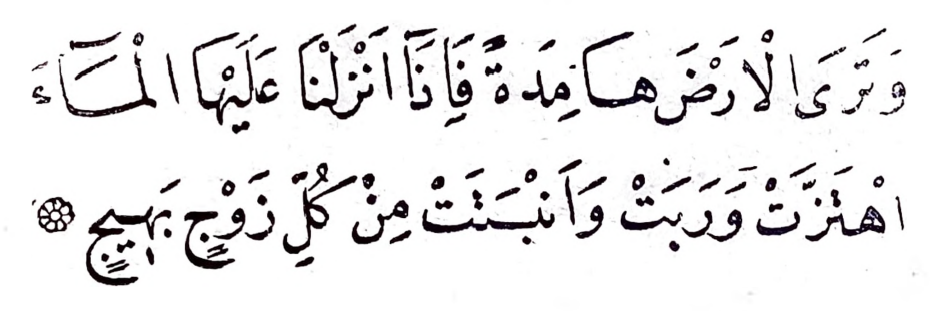 وَتَرَى الْاَرْضَ هَامِدَةً فَاِذَا اَنْزَلْنَا عَلَيْهَا الْمَٓاءَ
اهْتَزَّتْ وَرَبَتْ وَاَنْبَتَتْ مِنْ كُلِّ زَوْجٍ بَهٖيجٍ ۞